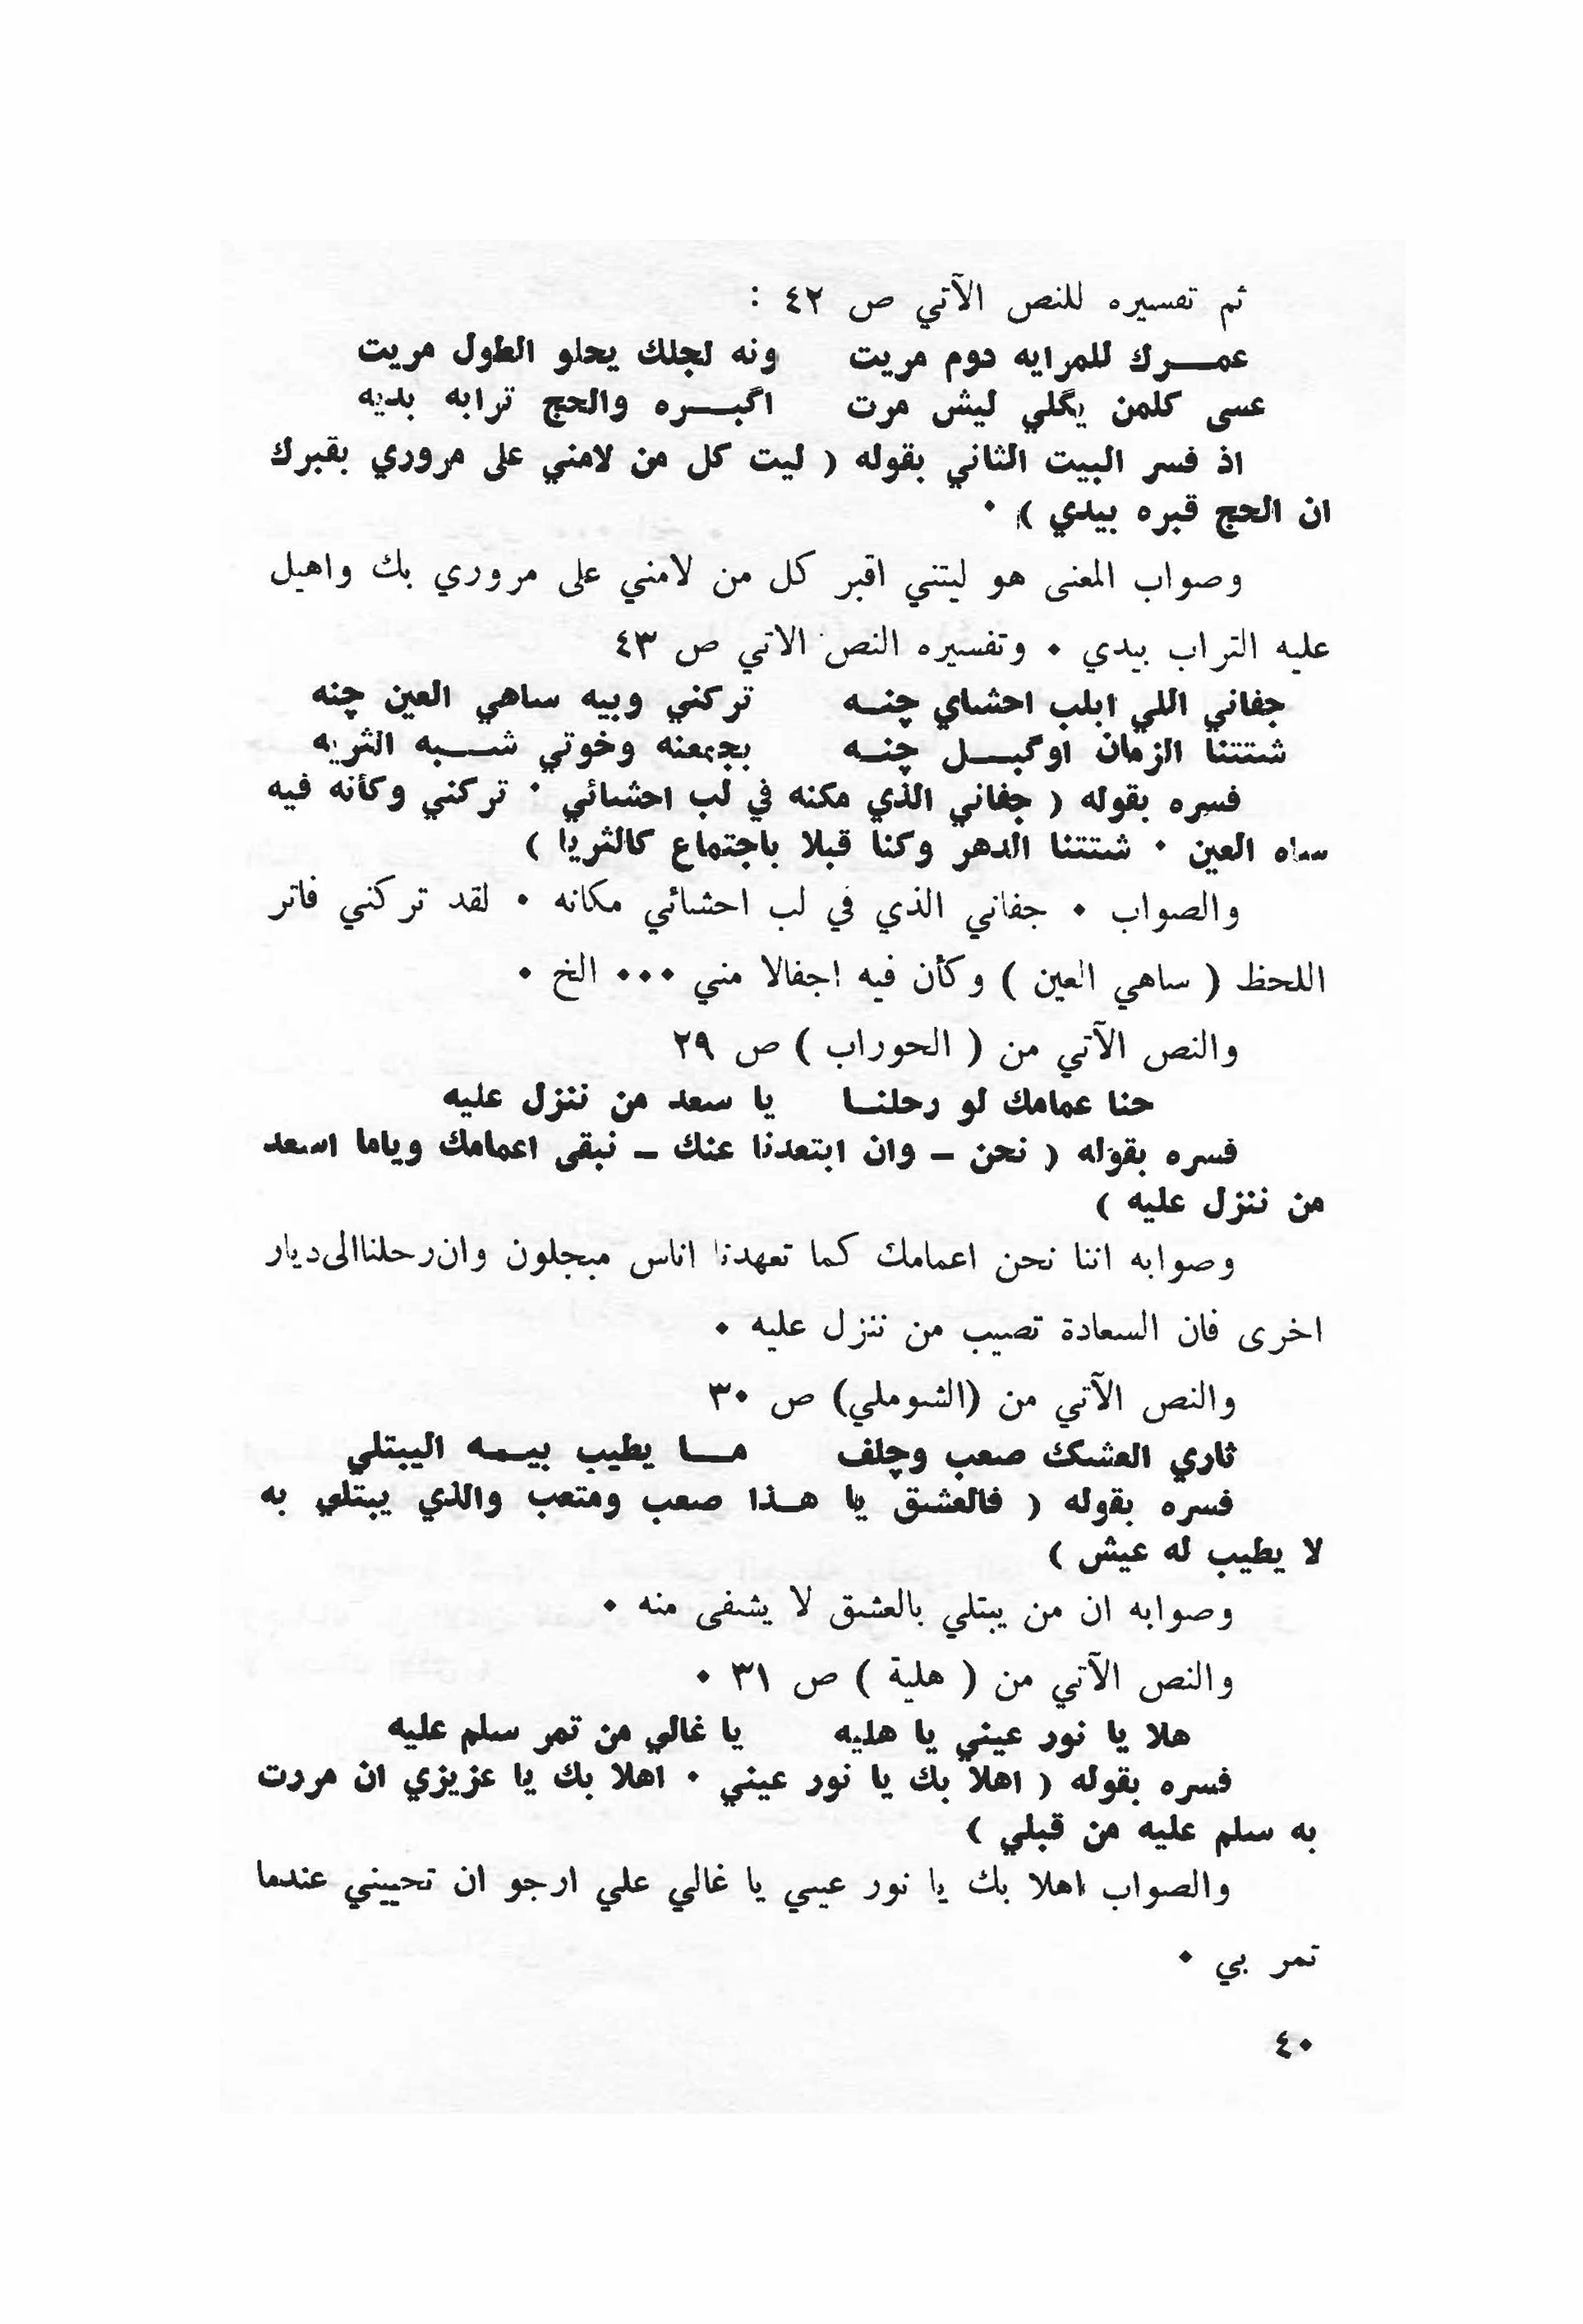 ثم تفسيره للنص الآتي ص ٤٢ :
عمـــرك للمرايه دوم مريت ونه لجلك يحلو الطول مريت
عسى كلمن يگلي ليش مرت اگبـــره والحج ترابه بديه
اذ فسر البيت الثاني بقوله ( ليت كل من لامني على مروري بقبرك
ان الحج قبره بيدي ) ٠
وصواب المعنى هو ليتني اقبر كل من لامني على مروري بك واهيل
عليه التراب بيدي ٠ وتفسيره النص الاتي ص ٤٣
جفاني اللي ابلب احشاي چنـه تركني وبيه ساهي العين چنه
شتتنا الزمان اوگبــل چنـه بجمعنه وخوتي شـــبه الثريه
فسره بقوله ( جفاني الذي مكنه في لب احشائي ٠ تركني وكأنه فيه
ساه العين ٠ شتتنا الدهر وكنا قبلا باجتماع كالثريا )
والصواب ٠ جفاني الذي في لب احشائي مكانه ٠ لقد تركني فاتر
اللحظ ( ساهي العين ) وكأن فيه اجفالا مني ٠٠٠ الخ ٠
والنص الآتي من ( الحوراب ) ص ٢٩
حنا عمامك لو رحلنـا يا سعد من ننزل عليه
فسره بقوله ( نحن – وان ابتعدنا عنك – نبقى اعمامك وياما اسعد
من ننزل عليه )
وصوابه اننا نحن اعمامك كما تعهدنا اناس مبجلون وان رحلنا الى ديار
اخرى فان السعادة تصيب من ننزل عليه ٠
والنص الآتي من (الشوملي) ص ٣٠
ثاري العشك صعب وچلف مــا يطيب بيــه اليبتلي
فسره بقوله ( فالعشق يا هـذا صعب ومتعب والذي يبتلي به
لا يطيب له عيش )
وصوابه ان من يبتلي بالعشق لا يشفى منه ٠
والنص الآتي من ( هلية ) ص ٣١ ٠
هلا يا نور عيني يا هليه يا غالي من تمر سلم عليه
فسره بقوله ( اهلا بك يا نور عيني ٠ اهلا بك يا عزيزي ان مررت
به سلم عليه من قبلي )
والصواب اهلا بك يا نور عيني يا غالي علي ارجو ان تحييني عندما
تمر بي ٠
٤٠